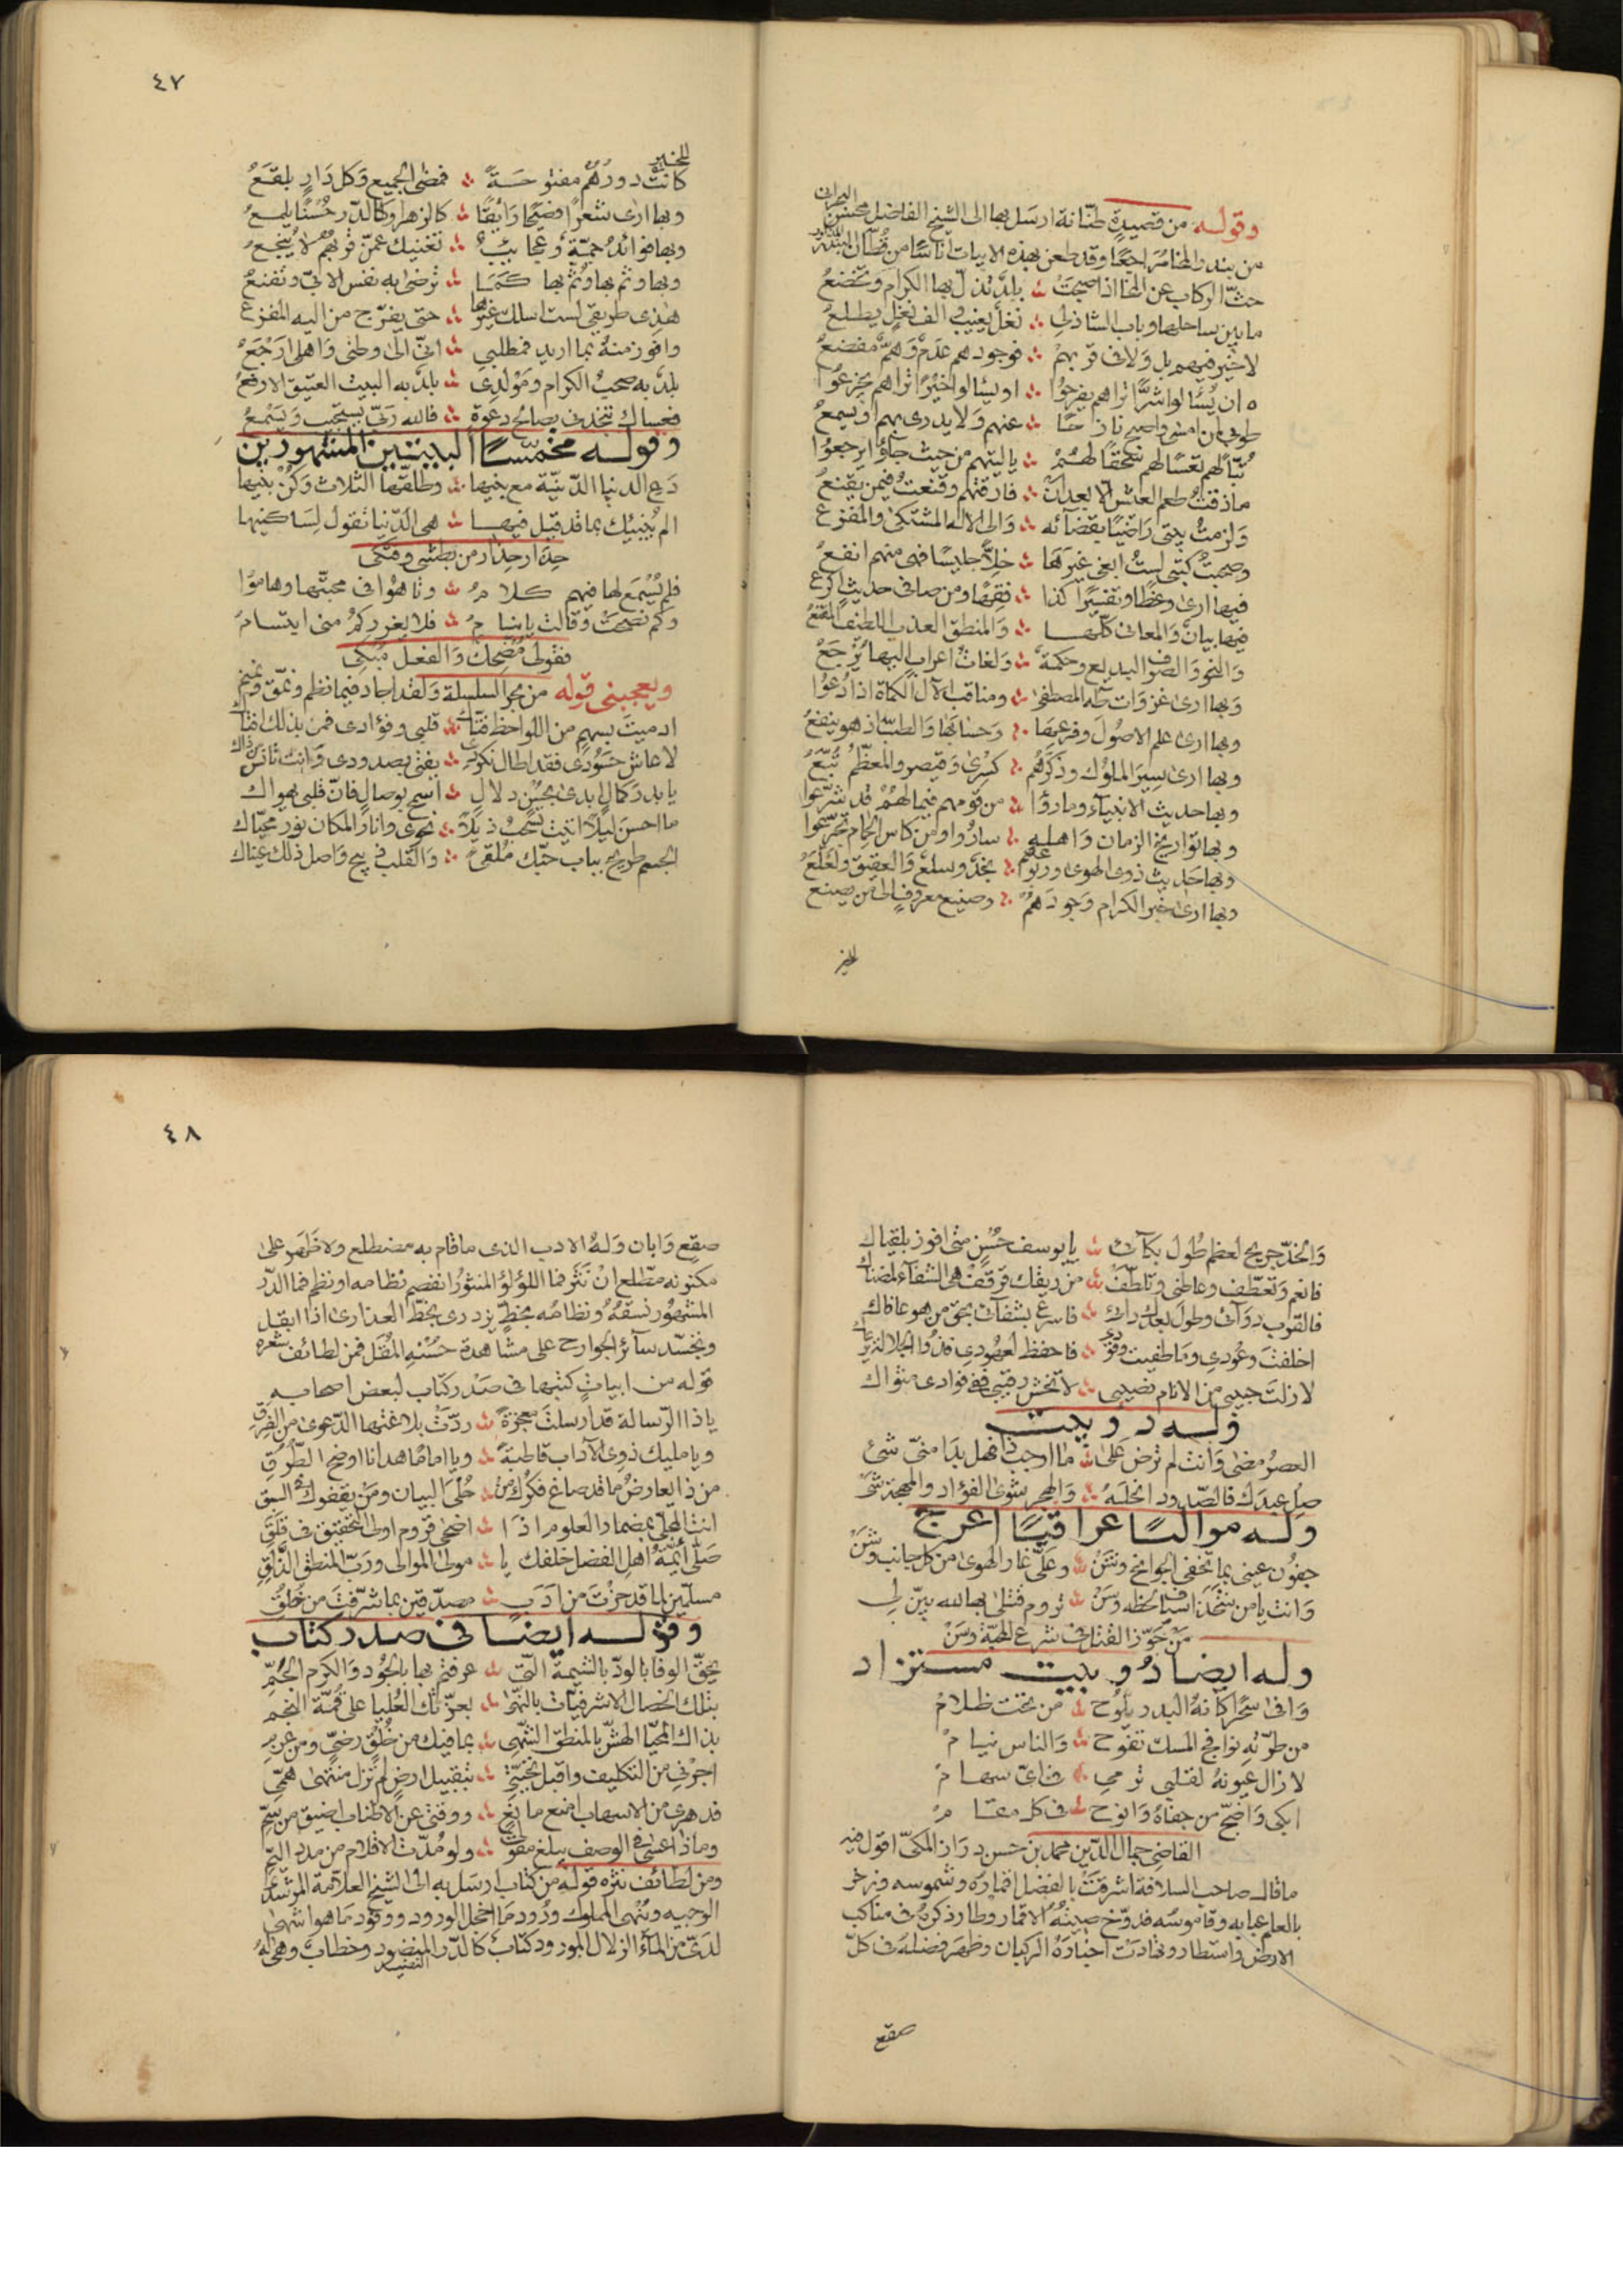 وقوله من قصيدة طنّانة ارسل بها الى الشيخ الفاضل محسن البحراني
من بندر المخا متراجعًا وقد طعن بهذه الابيات اناسًا من قُطّان البندر
حثّ الركاب عن المخا اذ اصبحت ؞ بلدٌ تذلّ بها الكرام وتخضعُ
ما بين ساحلها وباب الشاذلي ؞ نغلٌ يغيب والف نغلٍ يطلعُ
لا خير فيهم بل ولا في قربهم ؞ فوجودهم عدمٌ وهمٌّ مفضعُ
ان يُسئالوا شرًّا تراهم يفرحوا ؞ او يسئالوا خيرًا تراهم يجزعوا
طوبى لمن امسى واصبح نازحًا ؞ عنهم ولا يدرى بهم او يسمعُ
تبًّا لهم تعسًا لهم سحقًا لهُمْ ؞ يا ليتهم من حيث جآؤا يرجعوا
ما ذقت طعم العيش الا بعد ان ؞ فارقتهم وقنعتُ فيمن يقنعُ
ولزمتُ بيتى راضيًا بقضآئه ؞ والى الاله المشتكى والمفزعُ
وصحبتُ كتبى لستُ ابغى غيرها ؞ خلاًّ جليسًا فهى منهم انفعُ
فيها ارى وعظًا وتفسيرًا كذا ؞ فقهًا ومن صافى حديثٍ اكرعُ
فيها بيانٌ والمعانى كلّها ؞ والمنطق العذب اللطيف المقنعُ
والنحو والصرف البديع وحكمةٌ ؞ ولغاتُ اعرابٍ اليها يُرجَعُ
وبها ارى غزوات طه المصطفى ؞ ومناقب الآل الكماة اذا دُعوا
وبها ارى علم الاصول وفرعها ؞ وحسابَها والطبّ اذ هو ينفعُ
وبها ارى سِيَر الملوك وذكرهُم ؞ كسْرى وقيصر والمعظّمُ تُبّعُ
وبها حديث الانبيآء وما رؤا ؞ من قومهم فيما لهُمْ قد شرّعوا
وبها تواريخ الزمان واهلهِ ؞ ساروا ومن كاس الحِمام تجرّعوا
وبها حديث ذوى الهوى وربوعهم ؞ نجدٌ وسلعٌ والعقيق ولعلَعُ
وبها ارى خبر الكرام وجودَهُمْ ؞ وصنيع معروفٍ لمن يصنعُ
للخير
٤٧
كانت دورهُمُ مفتوحةً للخير ؞ فمضى الجميع وكل دارٍ بلقعُ
وبها ارى شعرًا فصيحًا رائقًا ؞ كالزهر او كالدّر حُسنًا يلمعُ
وبها فوائدُ جمّة وعجائبٌ ؞ تغنيك عمّن قربهُم لا يُنجعُ
وبها وثم بها وثم بها كمَا ؞ ترضى به نفس الابىّ وتقنعُ
هذى طريقى لست اسلك غيرها ؞ حتى يفرّج من اليه المفزعُ
وافوز منهُ بما اريد فمطلبى ؞ انّى الى وطنى واهلى ارجعُ
بلدٌ به صحبُ الكرام ومولدى ؞ بلدٌ به البيت العتيق الارفعُ
فعساك تنجدنى بصالح دعوة ؞ فالله ربّى يستجيب ويسمعُ
وقوله مخمّسًا البيتين المشهورين
دع الدنيا الدّنيّة مع بنيها ؞ وطلّقها الثلاث وكُنْ نبيها
الم يُنبيك ما قد قيل فيها ؞ هى الدّنيا تقول لِسَاكنيها
حِذارِ حذارِ من بطشى وفتكى
فلم يُسْمَع لها فيهم كلامُ ؞ وتاهُوا فى محبّتها وهاموا
وكم نصحتْ وقالت يا نيامُ ؞ فلا يغررْكمُ منى ابتسامُ
فقولى مُضحكٌ والفعل مُبكى
ويعجبنى قوله من بحر السلسلة ولقد اجاد فيما نظم ونمّق ونمنم
ارميتَ بسهم من اللواحظ فتّاك ؞ قلبى وفؤادى فمن بذلك افتاك
لا عاش حَسُودى فقد اطال نكرى ؞ يفنى بصدودى وانت تانس ذاك
يا بدر كمالٍ بدى بحُسْن دلالِ ؞ اسمح بوصالٍ فانّ قلبى يهواك
ما احسن ليلاً اتيتَ تسحب ذيلاً ؞ نحوى وانار المكان نور محيّاك
الجسم طريحٌ بباب حبّك مُلقىً ؞ والقلب جريحٌ واصل ذلك عيناك
والخدّ جريح لعظم طُول بكآئى ؞ يا يوسف حُسنٍ متى افوز بلقياك
فانعم وتعطّف وعاطنى وتلطّف ؞ من ريقك قرقف هى الشفآء لمضناك
فالقرب دوآئى وطول بعدك دآئى ؞ فاسرع بشفآئى بحق من هو عافاك
اخلفت وعُودى وما طفيت وقودى ؞ فاحفظ لعهودى فذو الجلالة يرعاك
لا زلتَ حبيبى من الانام نصيبى ؞ لا تخش رقيبى ففى فوادى مثواك
وله دوبيت
العصرُ مضى وانت لم ترض علىّ ؞ ما اوجب ذا فهل بدا منّى شئ
صِل عبدك فالصّدود انحلهُ ؞ والهجر شوى الفؤاد والمهجة شىّ
وله مواليًا عراقيًا اعرج
جفُون عينى بما تخفى الجوانح وشَنْ ؞ وعلىّ غار الهوى من كل جانب وشنْ
وانت يا من شحَذ اسياف لحظه وسَنْ ؞ تروم قتلى بها لله بيّن لى
مَن جَوّز القتل فى شرع المحبّة وسَنْ
وله ايضا دُوبيت مستزاد
وافى سحَرًا كانهُ البدر يلُوح ؞ من تحت ظلامْ
من طرّته نوافج المسك تفوح ؞ والناس نيامْ
لا زال عيونهُ لقلبى ترمى ؞ فى اىّ سهامْ
ابكى واضجّ من جفاهُ وانوح ؞ فى كل مقامْ
القاضى جمال الدّين محمد بن حسن دراز المكىّ اقول فيه
ما قال صاحب السلافة اشرقت بالفضل اقمارُه وشموسه وزخر
بالعلم عبابه وقاموسُه فدوّخ صيتُهُ الاقمار وطار ذكرهُ فى مناكب
الارض واستطار وتهادت اخبارَهُ الركبان وظهر فضلهُ فى كلّ
صقع
٤٨
صقع وابان ولهُ الادب الذى ما قام به مضطلع ولا ظهر على
مكنونه مطّلع انْ نَثَر فما اللؤلؤ المنثورُ انفصم نظامه او نظم فما الدّر
المشهُور نسقهُ ونظامُه بخطٍّ يزدرى بخطّ العذارى اذا ابقل
وتحسُد سآئر الجوارح على مشاهدة حُسْنهِ المُقَل فمن لطائف شعره
قوله من ابياتٍ كتبها فى صَدر كتاب لبعض اصحابه
ياذا الرّسالة قد ارسلتَ معجزةً ؞ ردّت بلاغتُها الدّعوى من الفِرَقِ
ويا مليك ذوى الآداب قاطبةً ؞ ويا امامًا هدانا اوضح الطُرُقِ
من ذا يعارضُ ما قد صاغ فكرُك من ؞ حُلَى البيان ومَنْ يقفوك فى السبق
انت المجلّى بمضمار العلوم اذا ؞ اضحى قروم اولى التحقيق فى قلَقِ
صلّى أئمّةُ اهل الفضل خلفك يا ؞ مولى الموالى وربّ المنطق الذّلِقِ
مسلّمين لما قد حزتَ من ادبٍ ؞ مصدّقين بما شرّفتَ من خُلُقِ
وقوله ايضًا فى صدر كتاب
بحقّ الوفا بالودّ بالشيمة التى ؞ عرفتم بها بالجُود والكرم الجَمِّ
بتلك الخصال الاشرفيّات بالنُّهى ؞ بعزّتك العُليا على قمّة النجم
بذاك المحيّا الهشّ بالمنطق الشّهى ؞ بما فيك من خُلقٍ رضىٍّ ومن عزم
اجرنى من التكليف واقبل تحيّتى ؞ بتقبيل ارضٍ لم تزل منتهى همّى
فدهرى من الاسهاب امنع مانع ؞ ووقتى عن الاطناب اضيق من سَمِّ
وماذا عسى فى الوصف يبلغ مقولٌ ؞ ولو مُدّت الاقلام من مدد اليمّ
ومن لطائف نثره قوله من كتابٍ ارسَل به الى الشيخ العلاّمة المرشد
الوجيه ويُنهى المملوك ورُود ما اخجل الورود ووفود ما هو اشهى
لدىّ من المآء الزلال المورود كتاب كالدّر المنضود وخطاب وهى لهُ